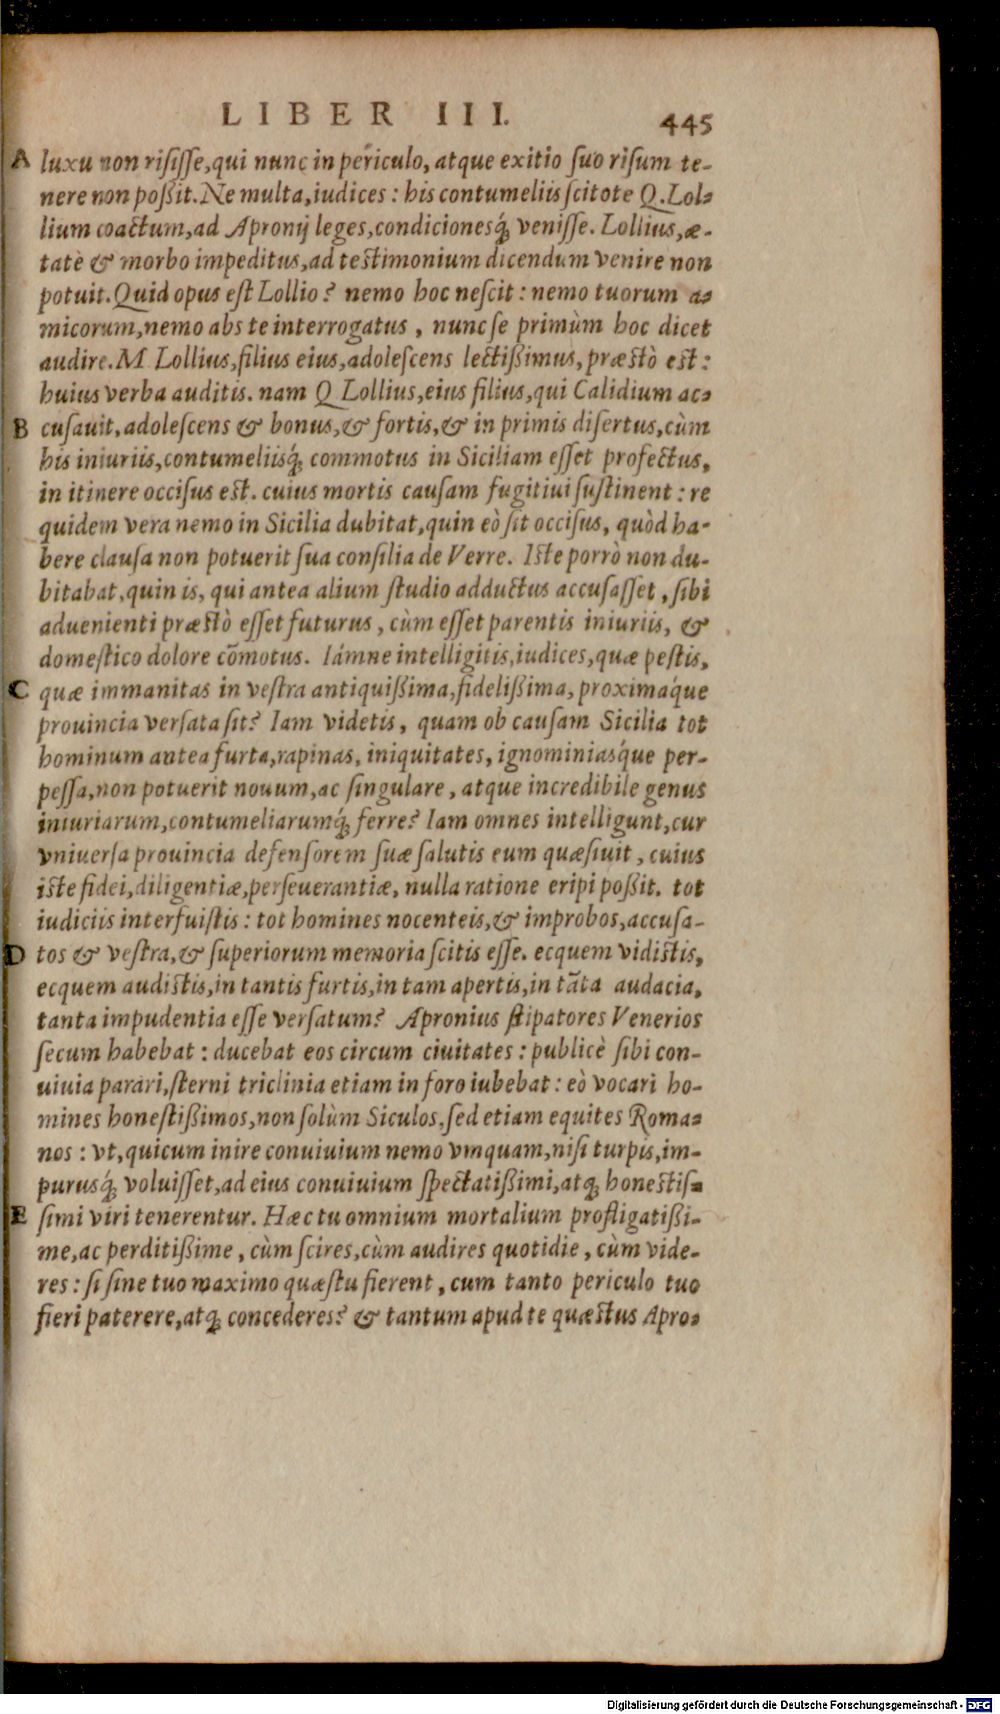 LIBER III. 445
A luxu non risisse, qui nunc in periculo, atque exitio suo risum te-
nere non poßit. Ne multa, iudices: his contumeliis scitote Q. Lol-
lium coactum, ad Apronij leges, condicionesq́; venisse. Lollius, æ-
tatè & morbo impeditus, ad testimonium dicendum venire non
potuit. Quid opus est Lollio? nemo hoc nescit: nemo tuorum a-
micorum, nemo abs te interrogatus, nunc se primùm hoc dicet
audire. M Lollius, filius eius, adolescens lectißimus, præstò est:
huius verba auditis. nam Q Lollius, eius filius, qui Calidium ac-
B cusauit, adolescens & bonus, & fortis, & in primis disertus, cùm
his iniuriis, contumeliisq́; commotus in Siciliam esset profectus,
in itinere occisus est. cuius mortis causam fugitiui sustinent: re
quidem vera nemo in Sicilia dubitat, quin eò sit occisus, quòd ha-
bere clausa non potuerit sua consilia de Verre. Iste porrò non du-
bitabat, quin is, qui antea alium studio adductus accusasset, sibi
aduenienti præstò esset futurus, cùm esset parentis iniuriis, &
domestico dolore cōmotus. Iámne intelligitis, iudices, quæ pestis,
C quæ immanitas in vestra antiquißima, fidelißima, proximáque
prouincia versata sit? Iam videtis, quam ob causam Sicilia tot
hominum antea furta, rapinas, iniquitates, ignominiasq́ue per-
pessa, non potuerit nouum, ac singulare, atque incredibile genus
iniuriarum, contumeliarumq́; ferre? Iam omnes intelligunt, cur
vniuersa prouincia defensorem suæ salutis eum quæsiuit, cuius
iste fidei, diligentiæ, perseuerantiæ, nulla ratione eripi poßit. tot
iudiciis interfuistis: tot homines nocenteis, & improbos, accusa-
D tos & vestra, & superiorum memoria scitis esse. ecquem vidistis,
ecquem audistis, in tantis furtis, in tam apertis, in tāta audacia,
tanta impudentia esse versatum? Apronius stipatores Venerios
secum habebat: ducebat eos circum ciuitates: publicè sibi con-
uiuia parari, sterni triclinia etiam in foro iubebat: eò vocari ho-
mines honestißimos, non solùm Siculos, sed etiam equites Roma-
nos: vt, quicum inire conuiuium nemo vmquam, nisi turpis, im-
purusq́; voluisset, ad eius conuiuium spectatißimi, atq; honestis-
E simi viri tenerentur. Hæc tu omnium mortalium profligatißi-
me, ac perditißime, cùm scires, cùm audires quotidie, cùm vide-
res: si sine tuo maximo quæstu fierent, cum tanto periculo tuo
fieri paterere, atq; concederes? & tantum apud te quæstus Apro-
Digitalisierung gefördert durch die Deutsche Forschungsgemeinschaft - DFG